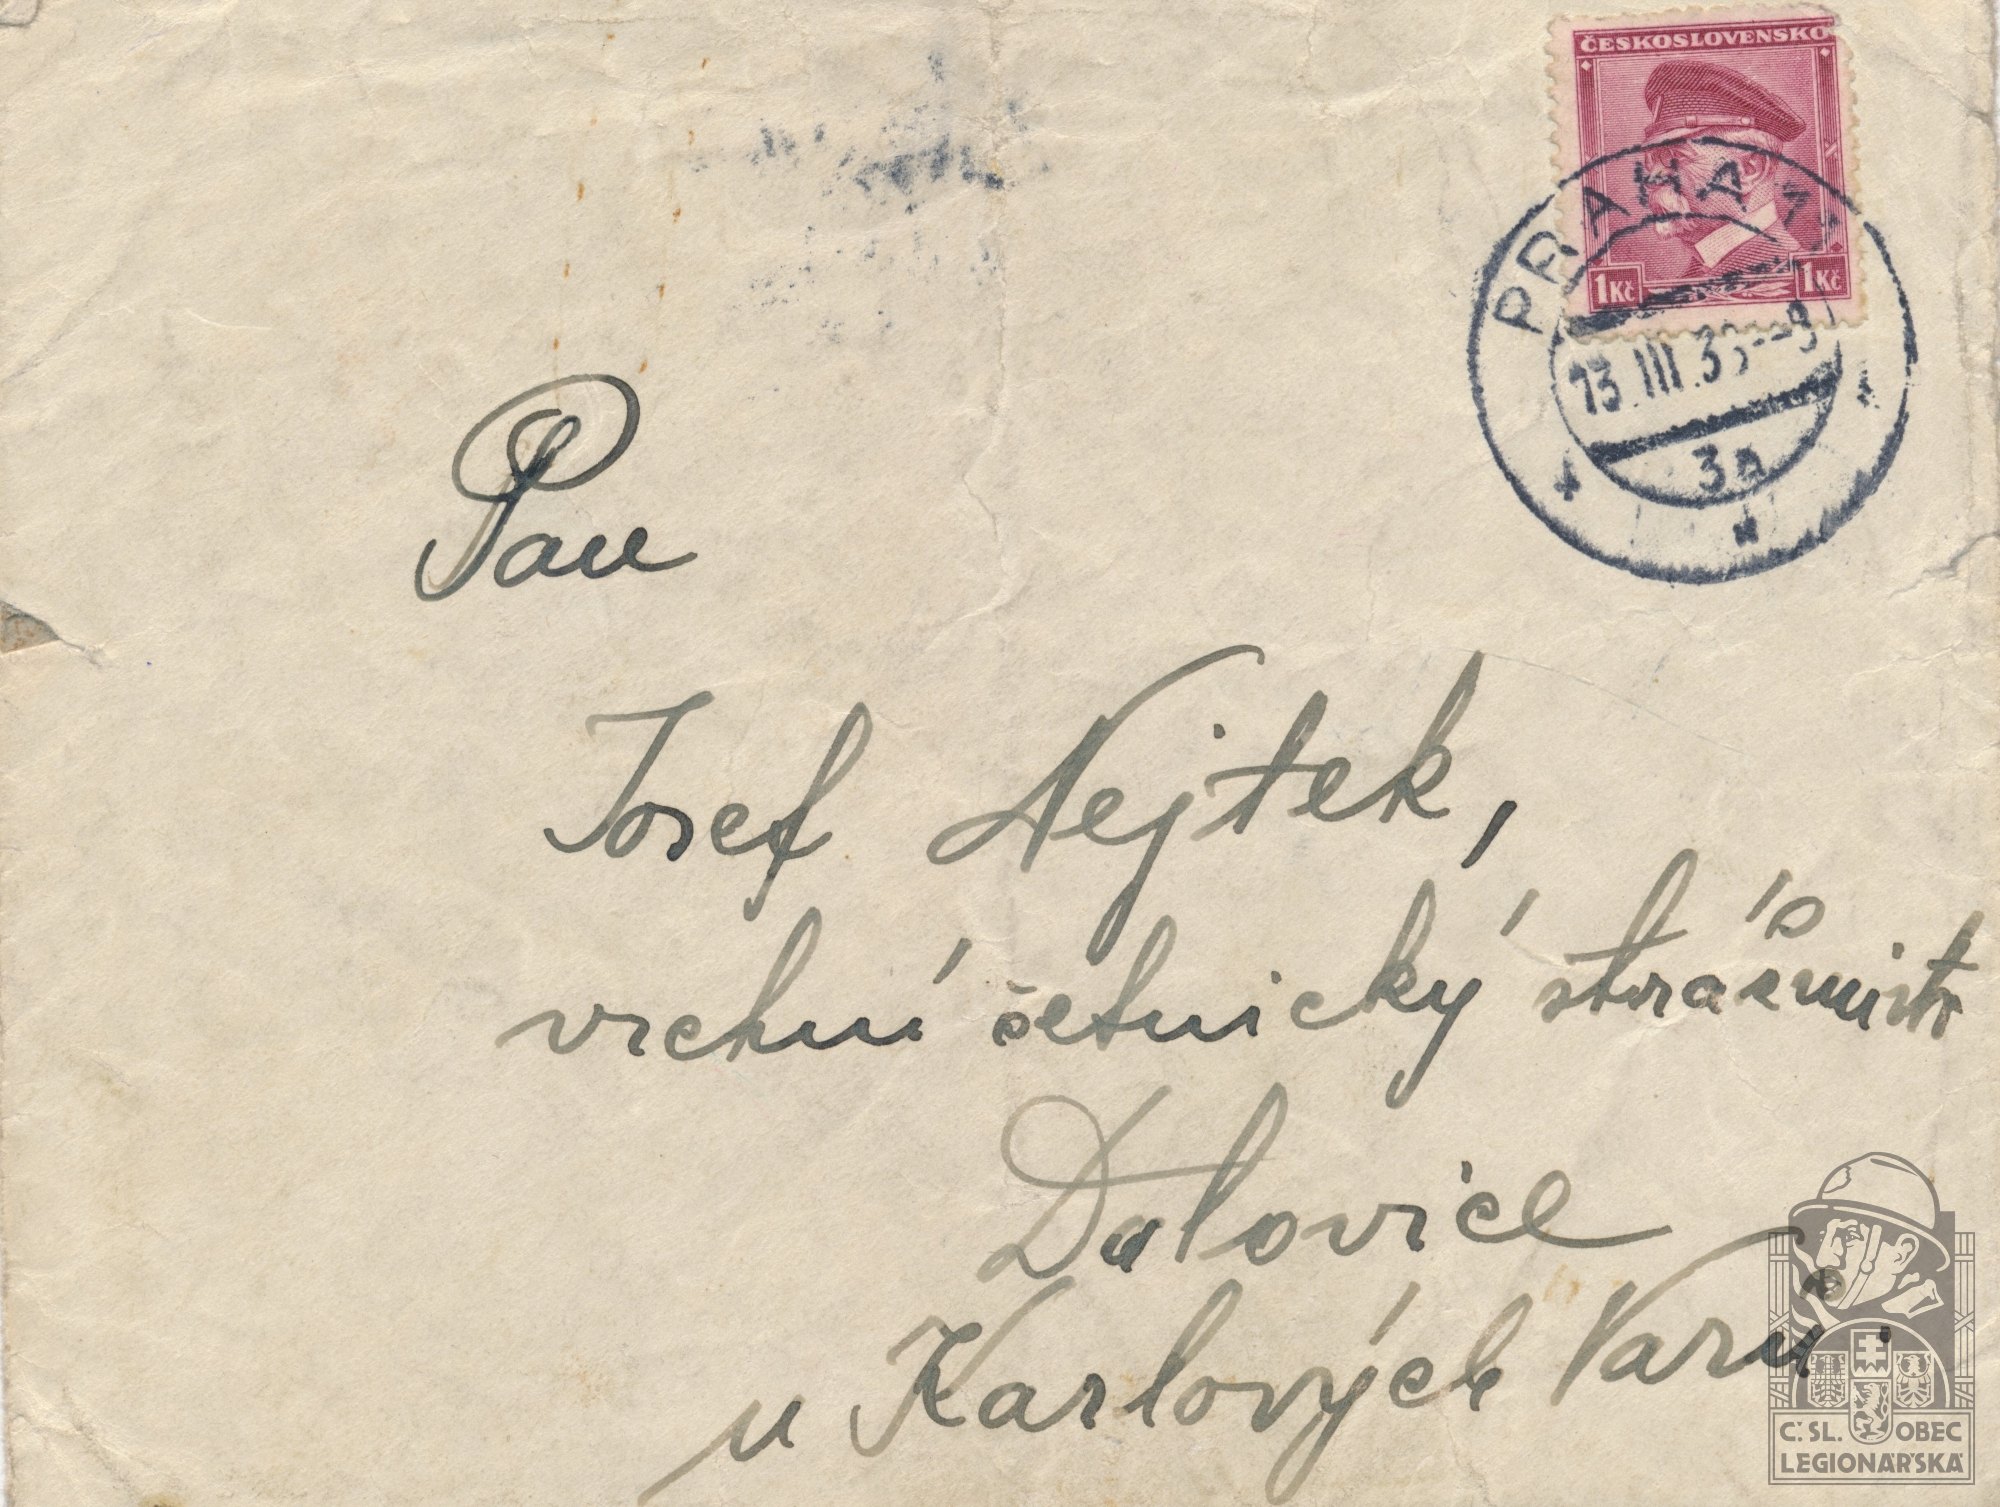 ČESKOSLOVENSKO
1Kč 1Kč
PRAHA 1
13.III.3
3a
Pan
Josef Nejtek,
vrchní četnický strážmistr
Dalovice
u Karlových Varů.
Č. SL. OBEC
LEGIONÁŘSKÁ